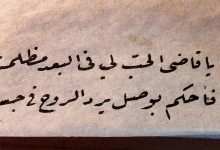 يا قاضى الحبّ لي في البعد مظلمة
فاحكم بوصل يرد الروح في